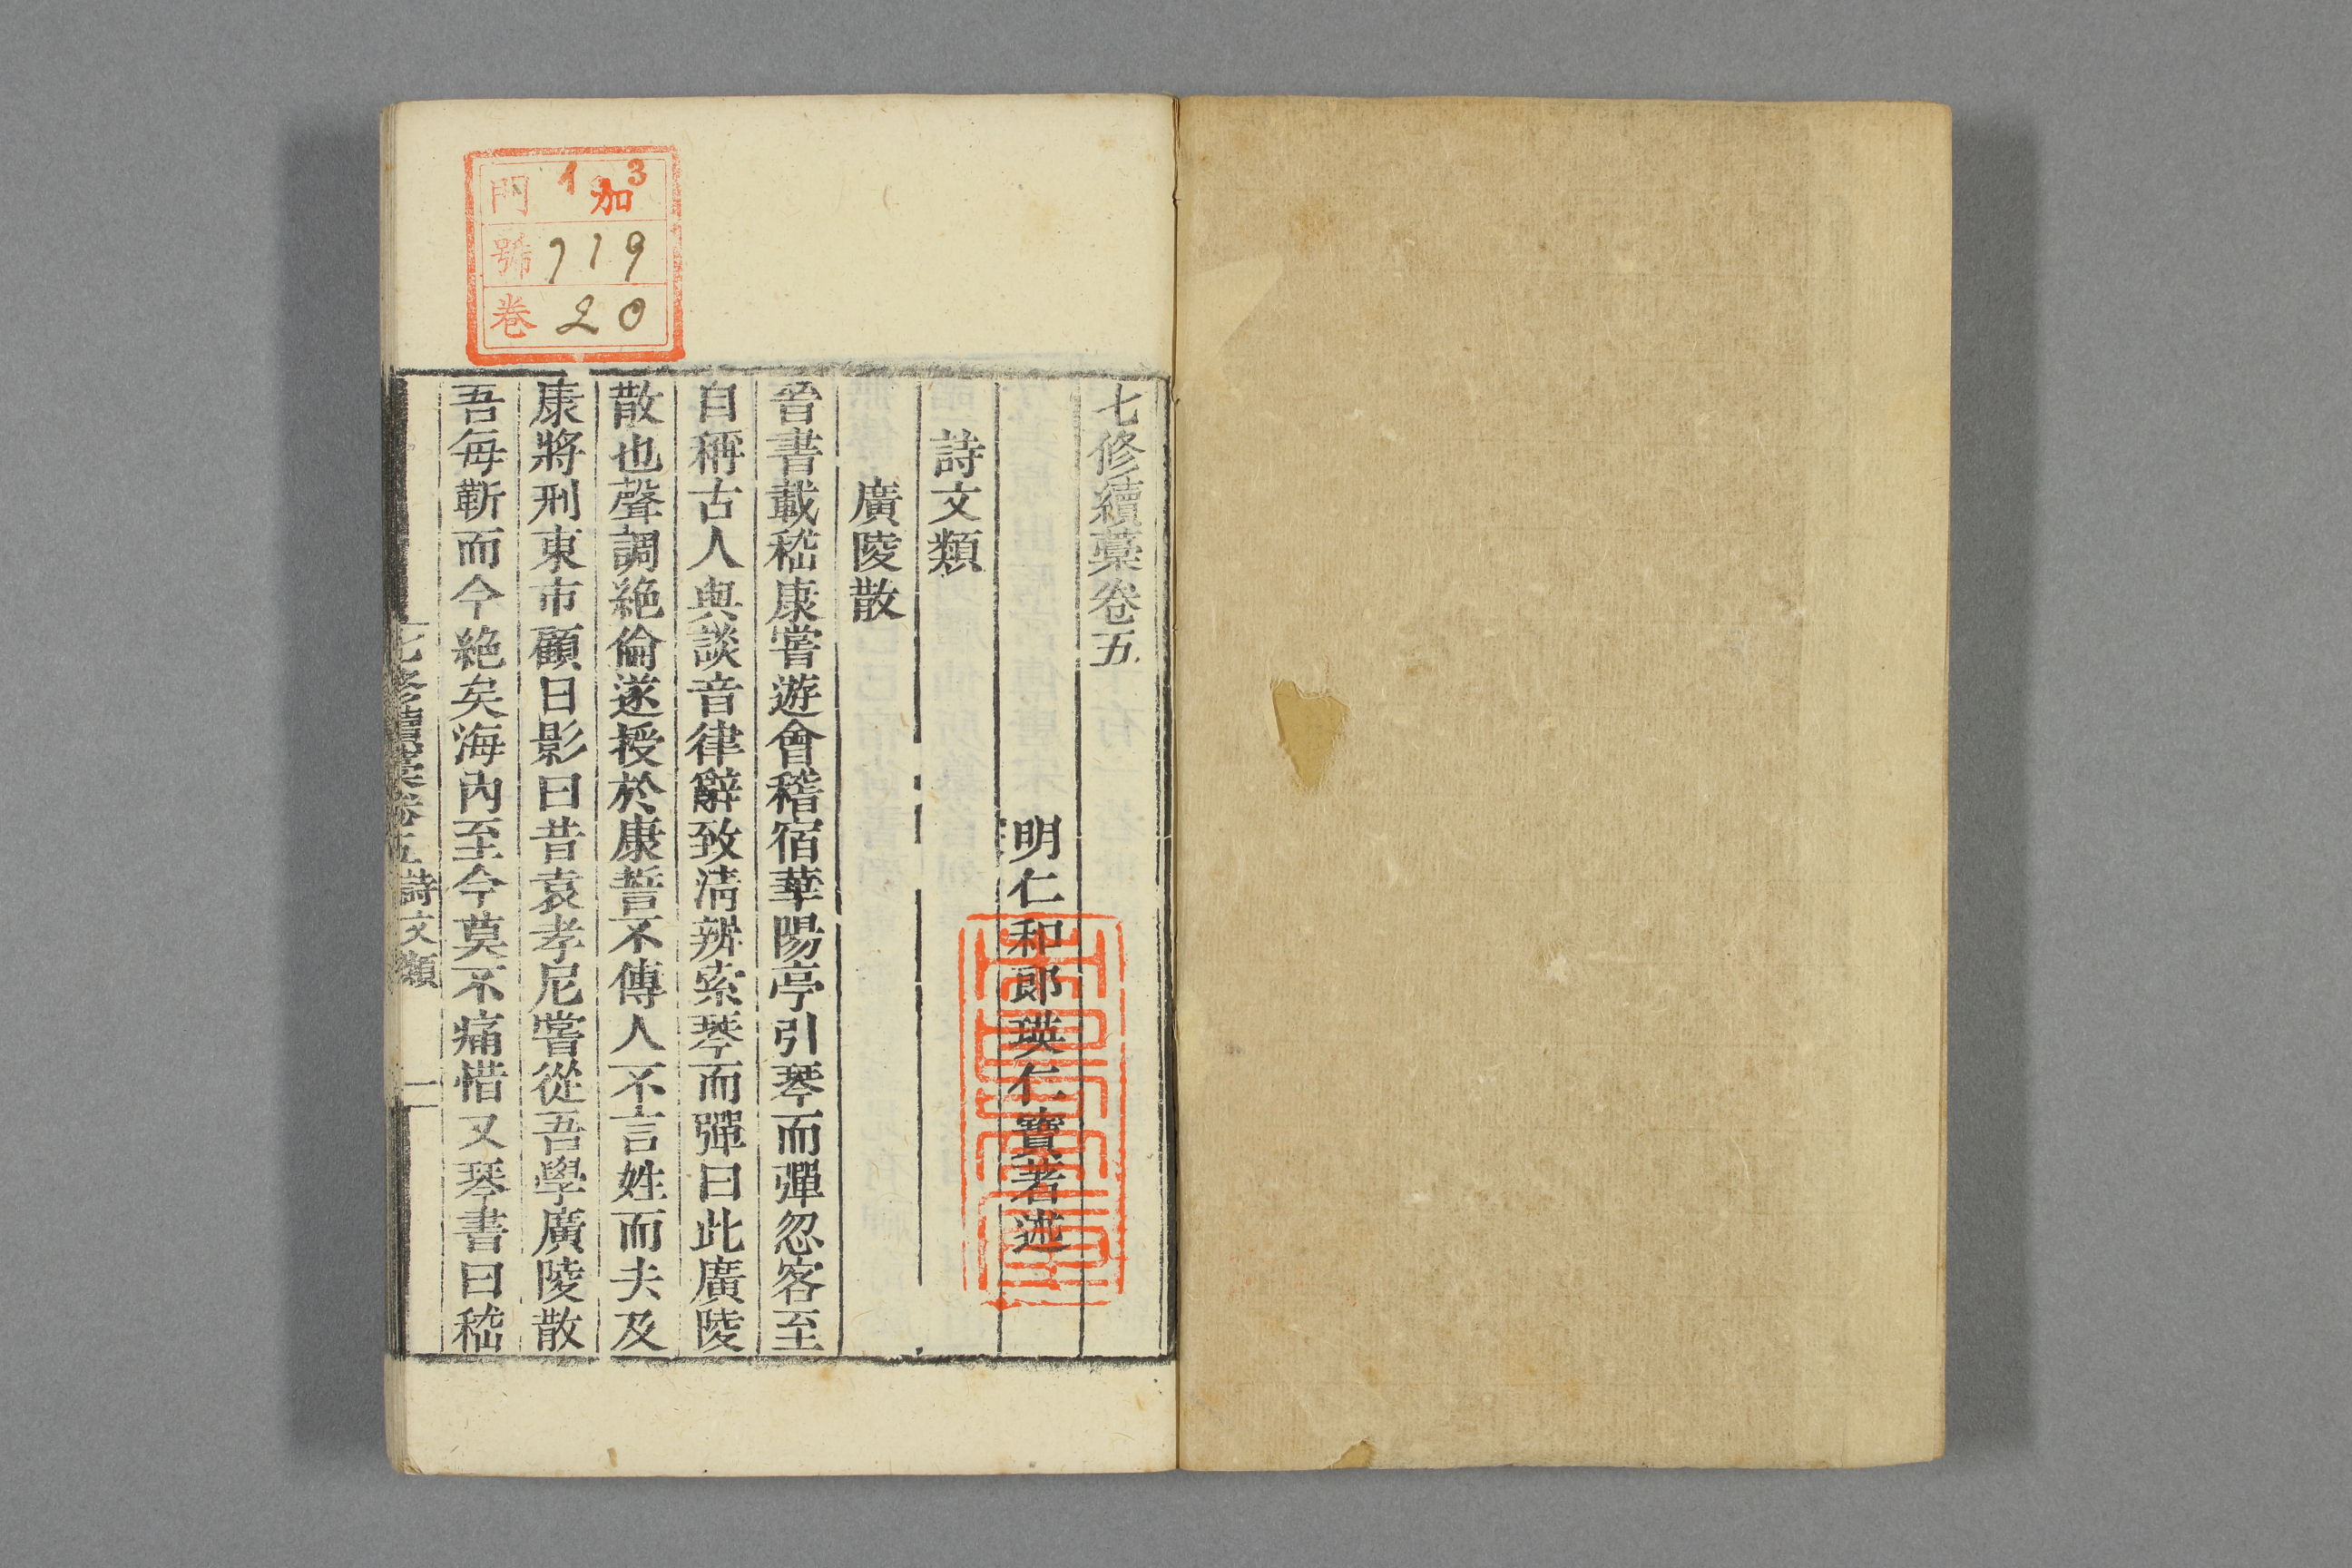 七修續藁卷五
明仁和郎瑛仁寶著述
詩文類
廣陵散
晉書載嵇康嘗遊會稽宿華陽亭引琴而彈忽客至
自稱古人與談音律辭致淸辨索琴而彈曰此廣陵
散也聲調絶倫遂授於康誓不傳人不言姓而去及
康將刑東市顧日影曰昔袁孝尼嘗從吾學廣陵散
吾每靳而今絶矣海內至今莫不痛惜又琴書曰嵇
七修續藁卷五 詩文類 一
門 1 加 3
號 719
卷 20